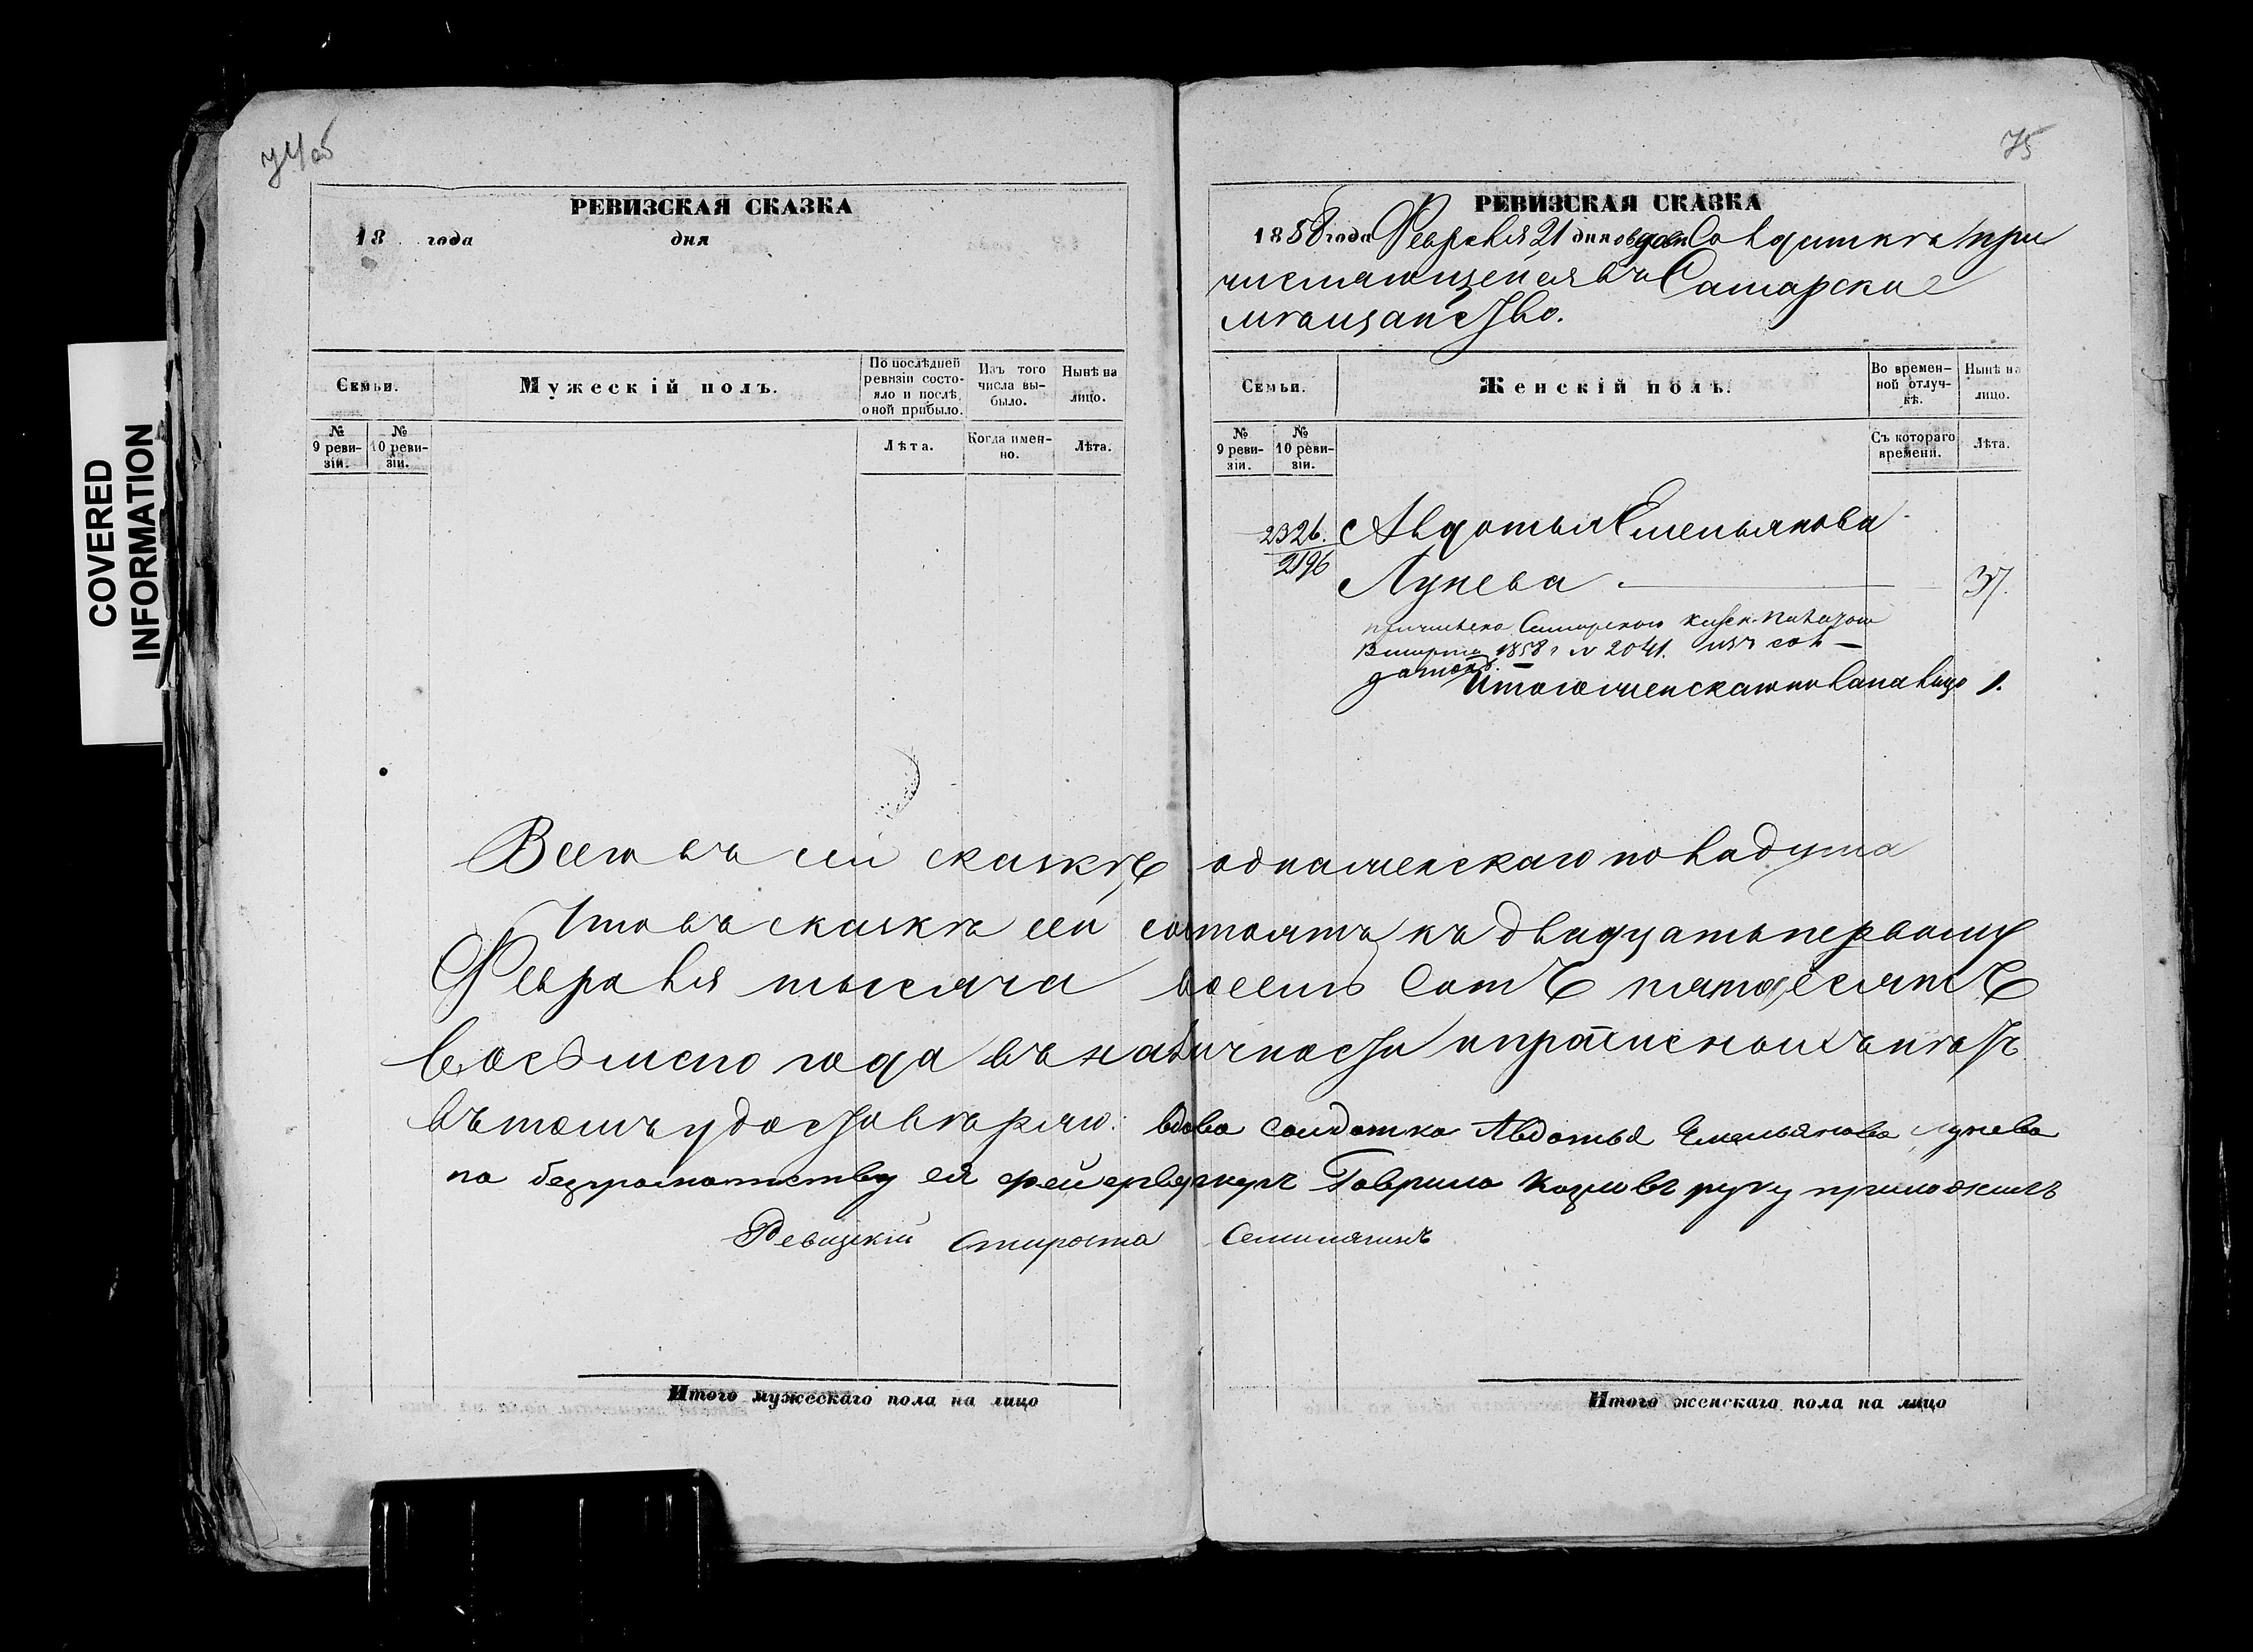 74об
РЕВИЗСКАЯ СКАЗКА
18 года дня
Семьи.
Мужескій полъ.
По послѣдней ревизіи состояло и послѣ оной прибыло.
Изъ того числа выбыло.
Нынѣ на лицо.
№ 9 ревизіи.
№ 10 ревизіи.
Лѣта.
Когда именно.
Лѣта.
75
РЕВИЗСКАЯ СКАЗКА
1858 года Февраля 21 дня о вдовѣ Солдаткѣ при
числяющейся въ Самарское
мѣщанство.
Семьи.
Женскій полъ.
Во временной отлучкѣ.
Нынѣ на лицо.
№ 9 ревизіи.
№ 10 ревизіи.
Съ котораго времени.
Лѣта.
2326. Авдотья Емельянова
2196 Лунева 37.
причислена Самарскою Казен. Палатою
В марта 1858 г N 2041. изъ сол-
датокъ.
Итого женскаго пола на лицо 1.
Всего въ сей сказкѣ одна женскаго пола душа
Что въ сказкѣ сей состоятъ къ двадцать первому
Февраля тысяча восемь сотъ пятдесятъ
восьмого года въ наличности и прописныхъ нѣтъ
въ томъ удостовѣряю: вдова солдатка Авдотья Емельянова Лунева
по безграмотству ея фейерверкеръ Гаврило Козловъ руку приложилъ
Ревизкій Староста
Итого мужескаго пола на лицо
Итого женскаго пола на лицо
COVERED
INFORMATION